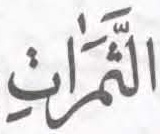 الثَّمَرَٰتِ